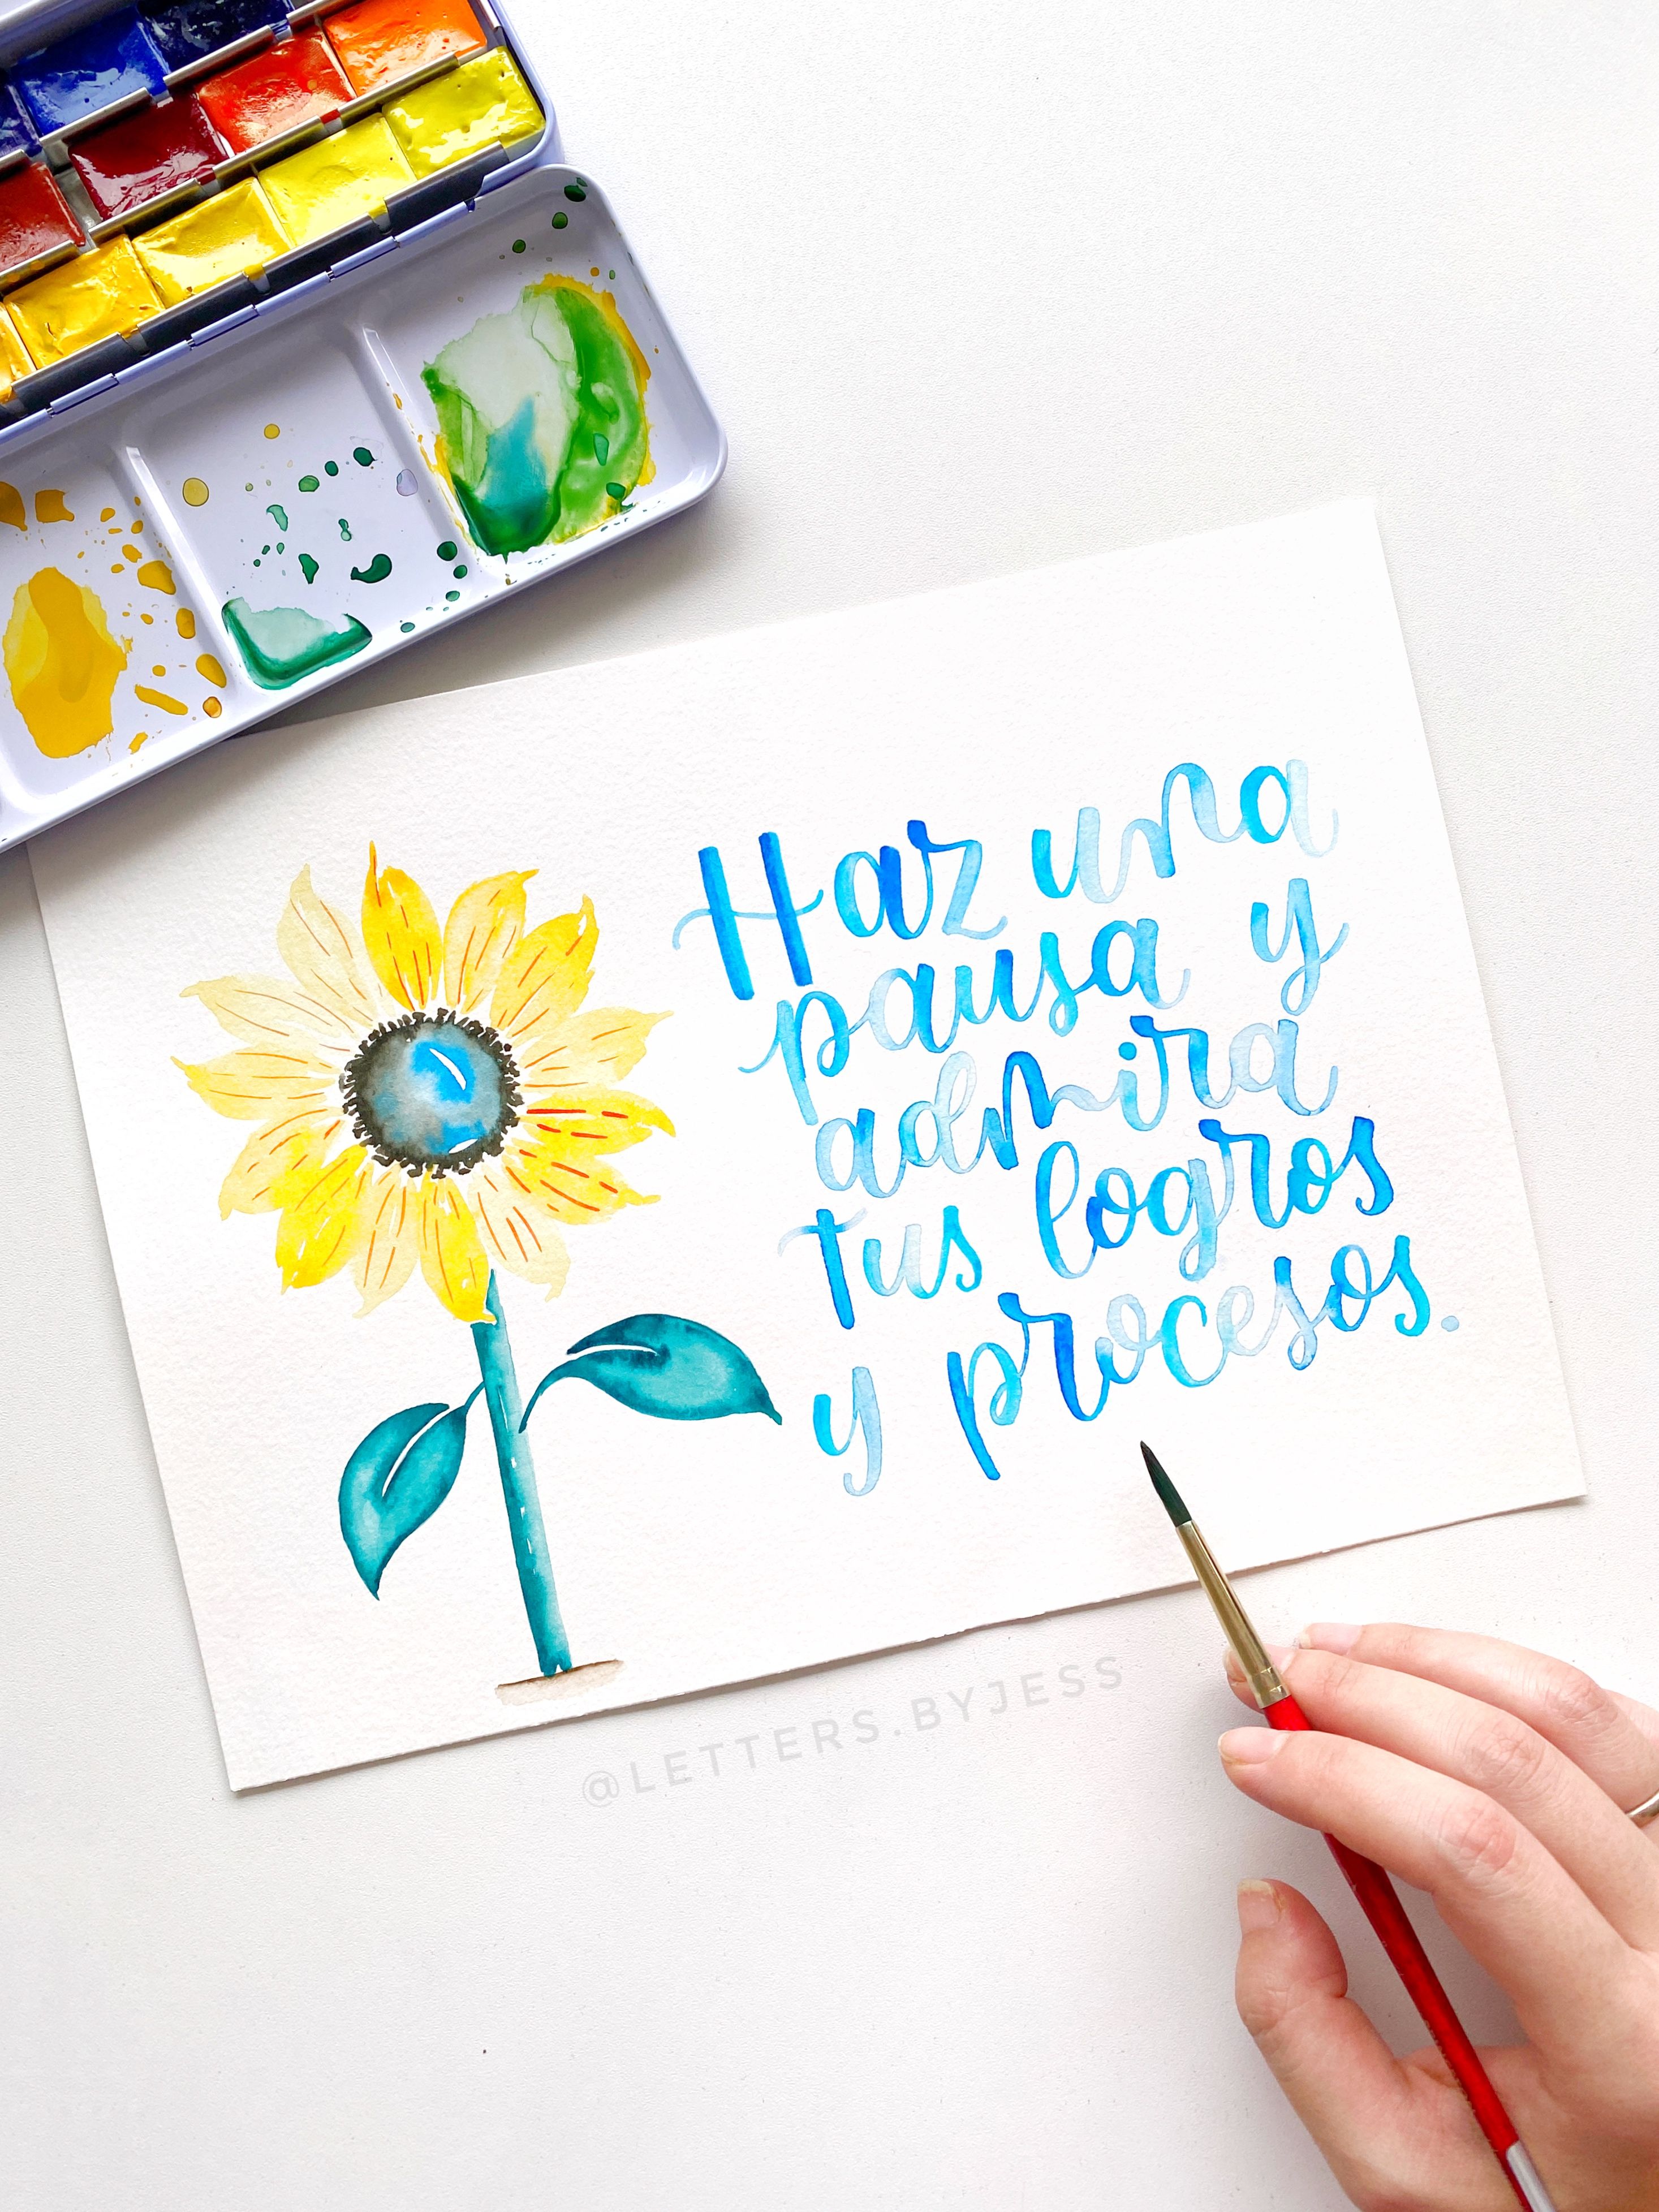 Haz una
pausa y
admira
tus logros
y procesos.
@LETTERS.BYJESS